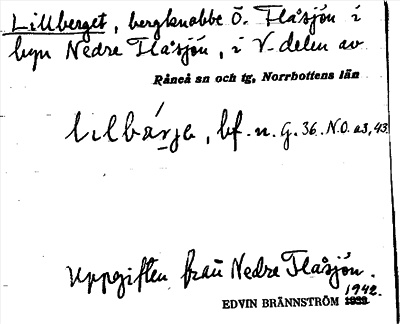 Lillberget, bergknabbe Ö. Flåsjön i
byn Nedre Flåsjön, i V-delen av
Råneå sn och tg, Norrbottens län
lilbárje, bf. n. G. 36. N.O. a3,43
Uppgiften från Nedre Flåsjön.
1942.
EDVIN BRÄNNSTRÖM